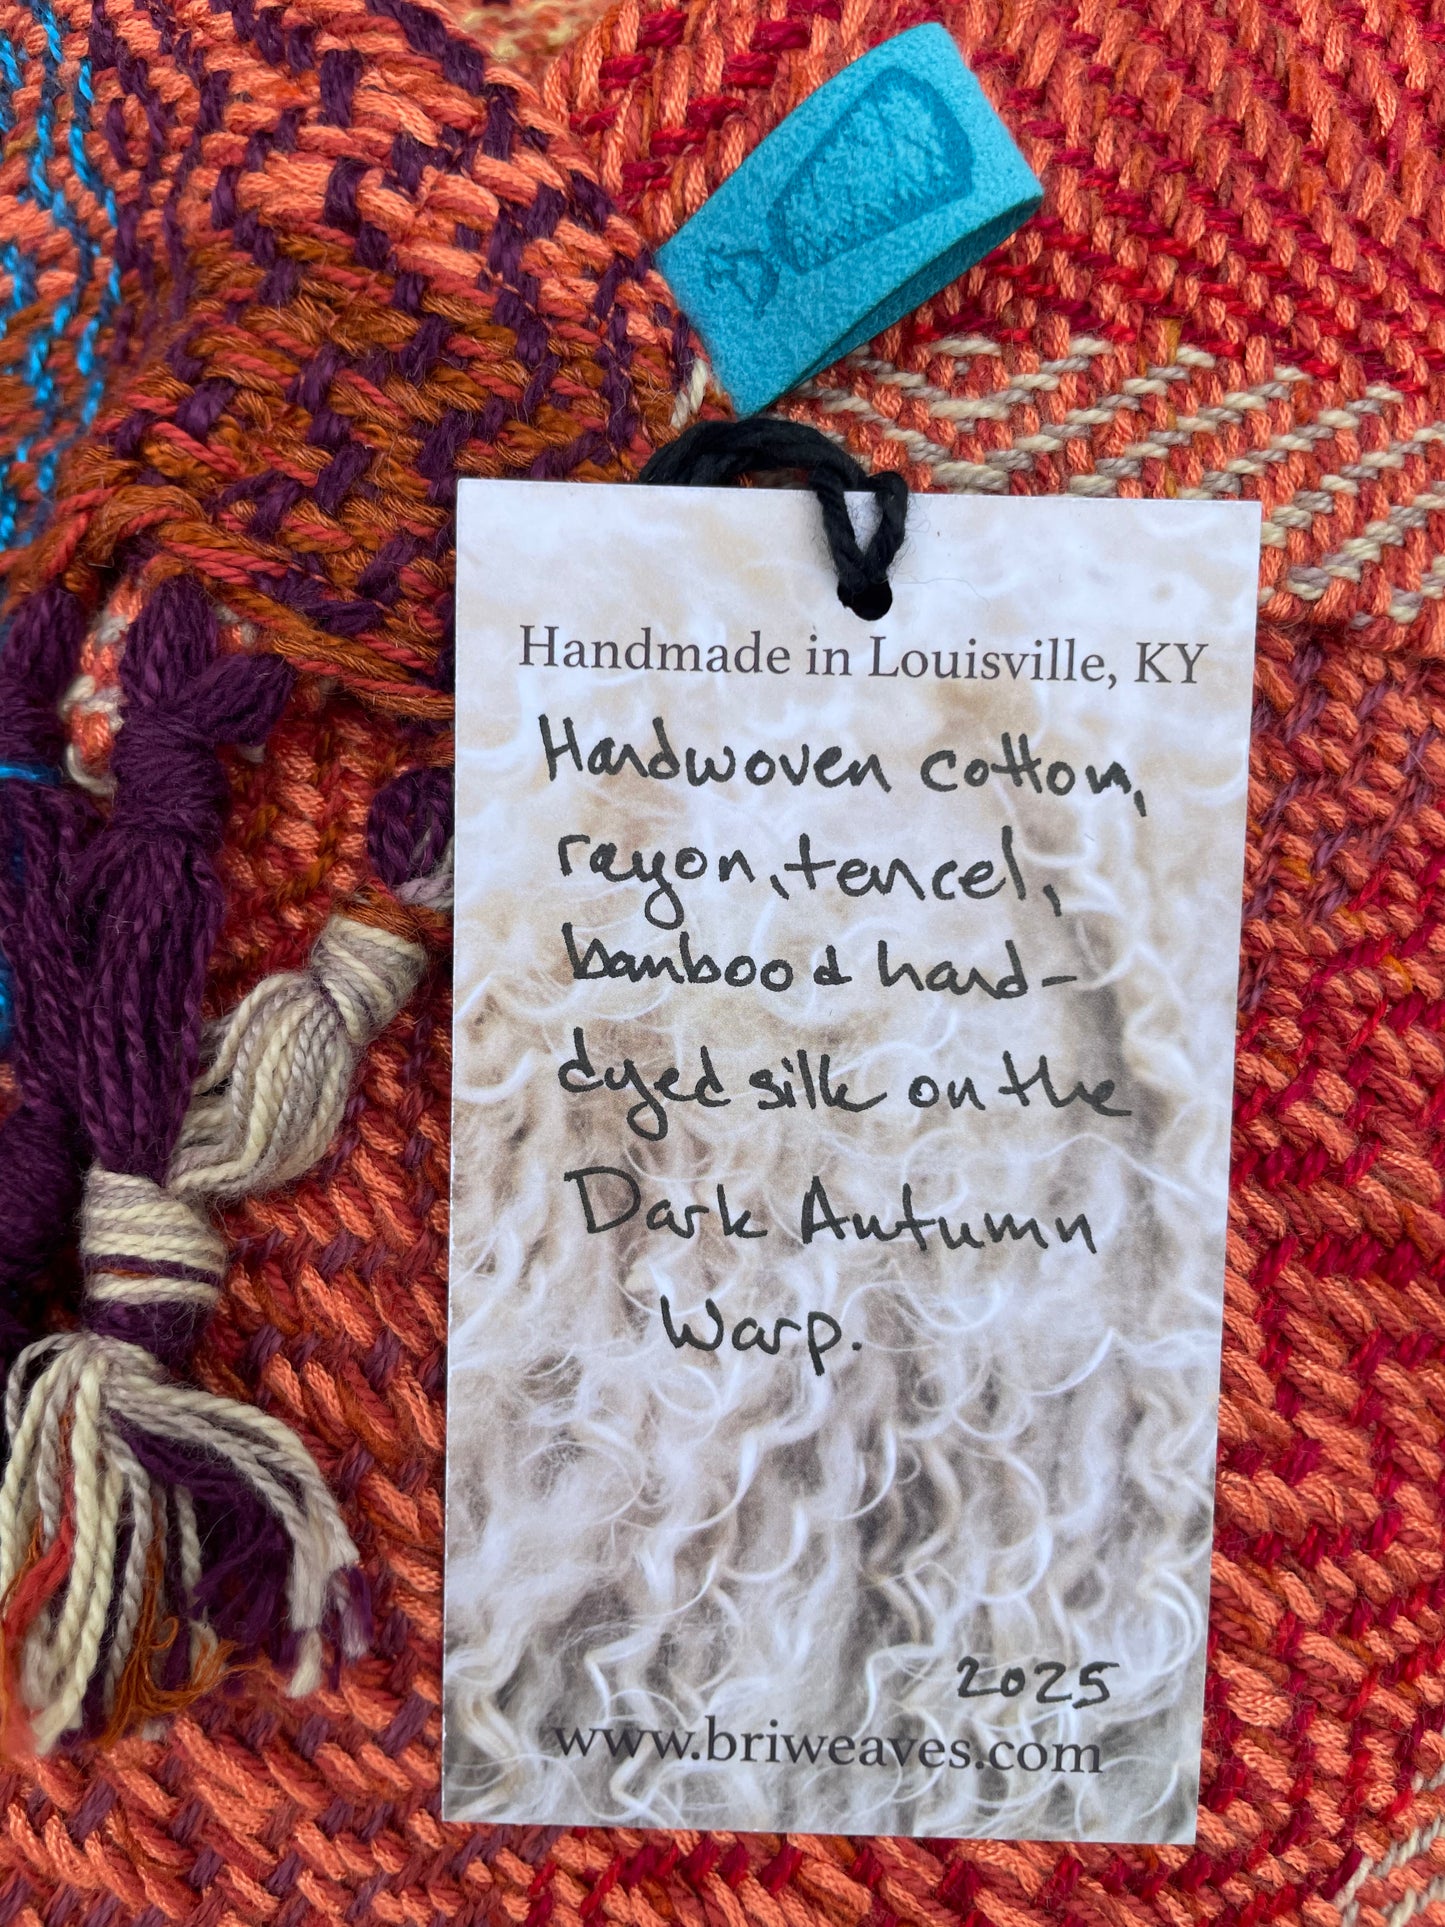 Handmade in Louisville, KY
Handwoven cotton,
rayon, tencel,
bamboo & hand-
dyed silk on the
Dark Autumn
Warp.
2025
www.briweaves.com